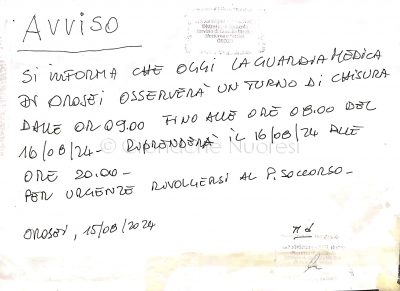 AVVISO
SI INFORMA CHE OGGI LA GUARDIA MEDICA
DI OROSEI OSSERVERÀ UN TURNO DI CHIUSURA
DALLE OR 09.00 FINO ALLE ORE 08.00 DEL
16/08/24 - RIPRENDERÀ IL 16/08/24 ALLE
ORE 20.00 -
PER URGENZE RIVOLGERSI AL P. SOCCORSO -
OROSEI, 15/08/2024
© Cronache Nuoresi